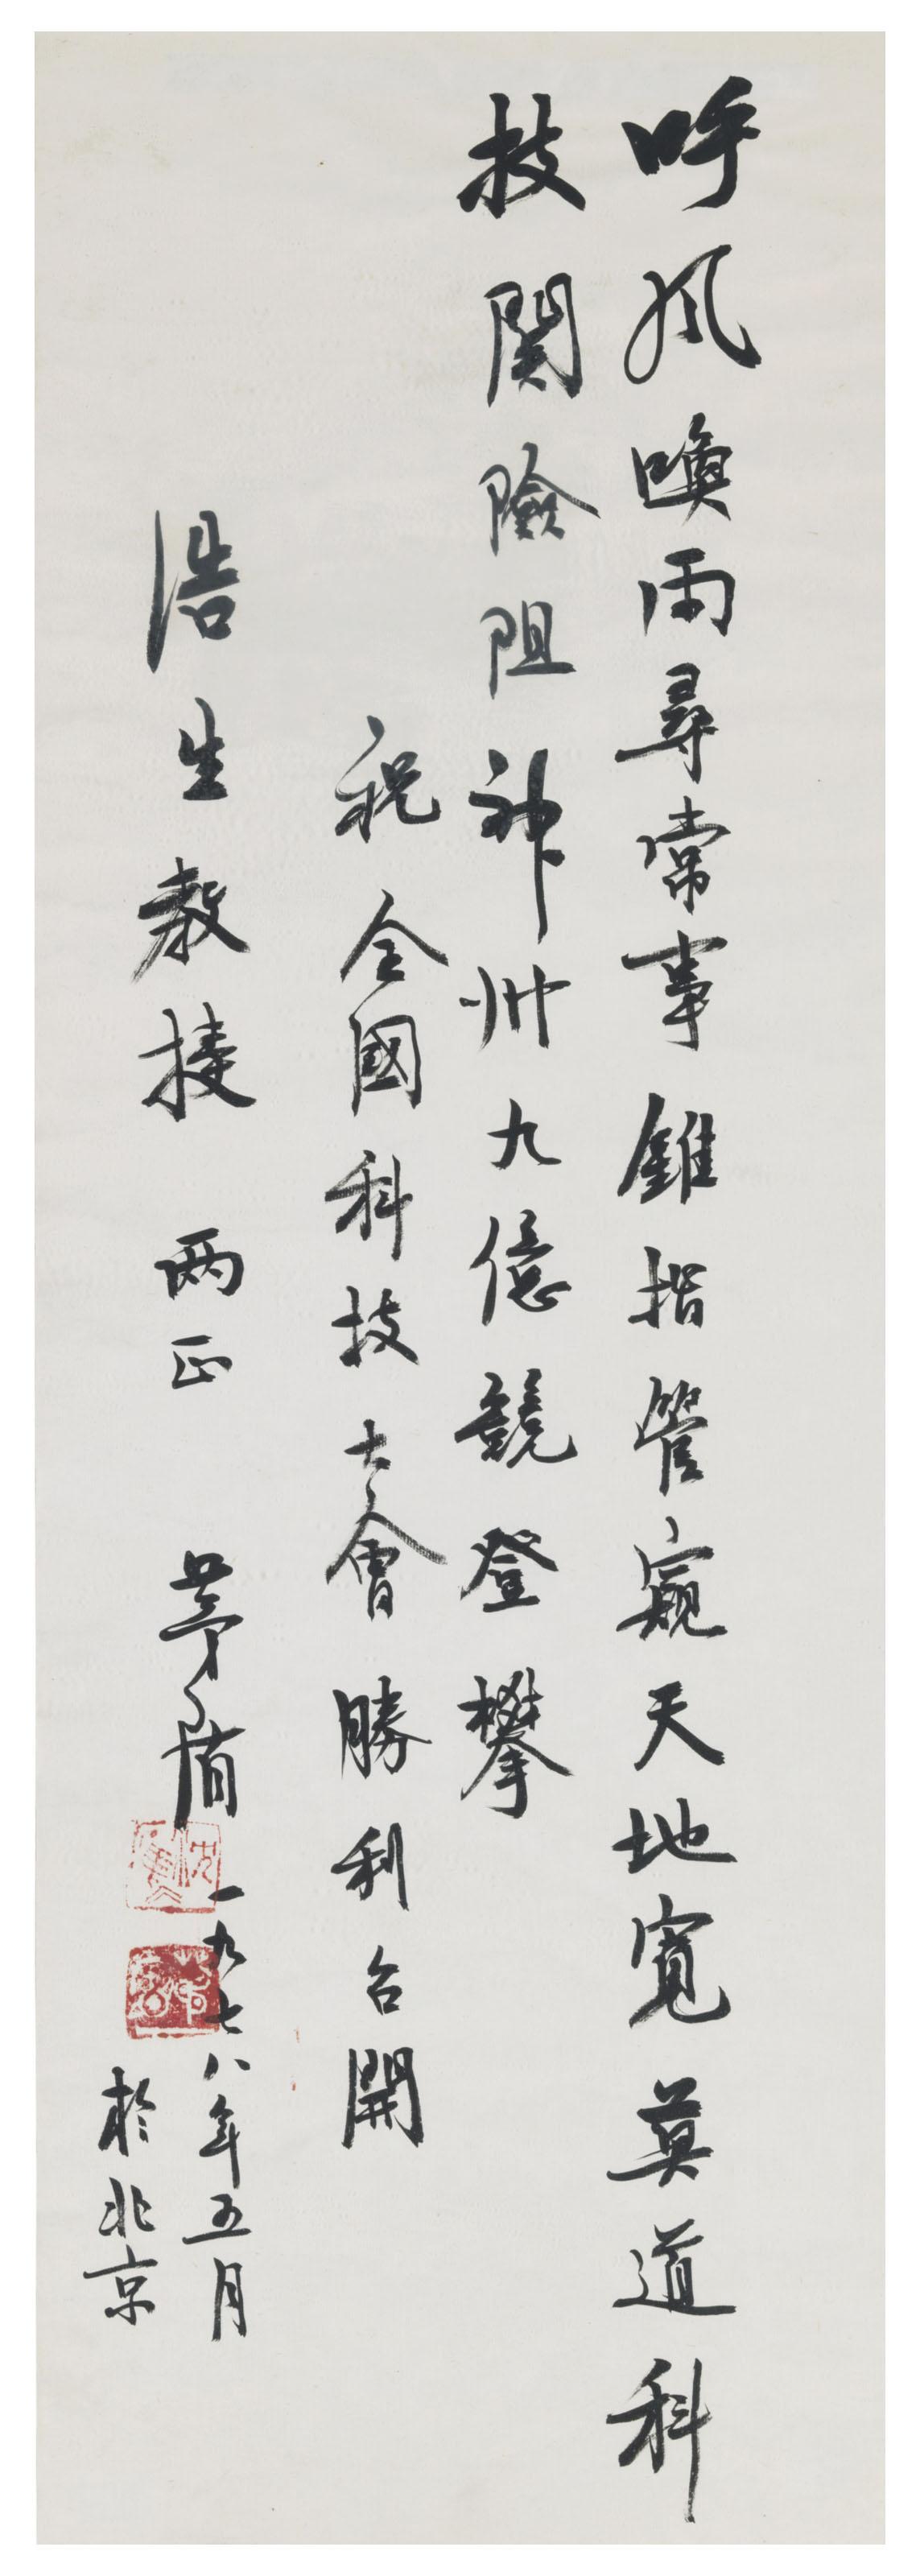 呼風喚雨尋常事錐指管窺天地寬莫道科
技関險阻神州九億競登攀
祝全國科技大會勝利召開
浩生教授 两正 茅盾
一九七八年五月
於北京